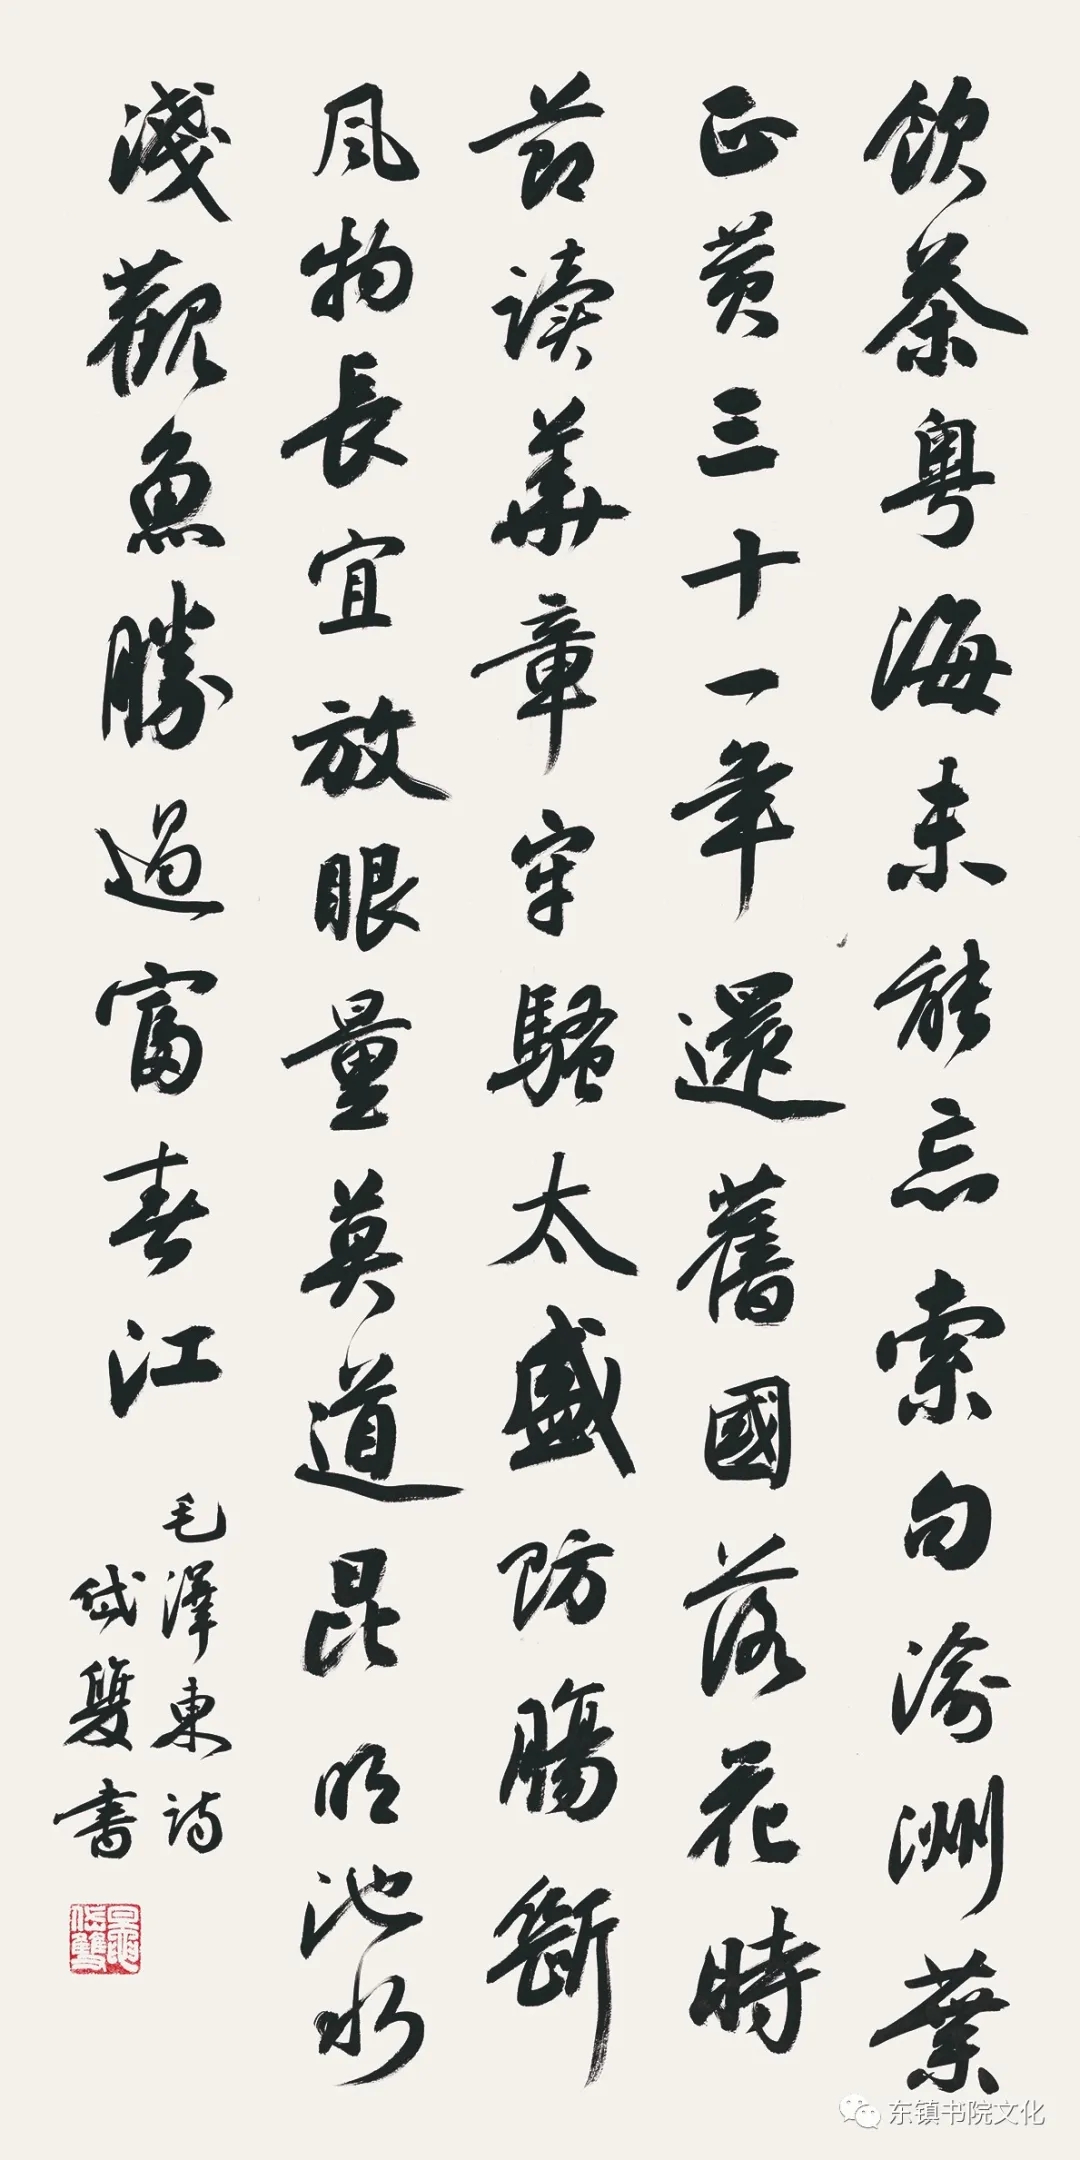 飲茶粵海未能忘索句渝洲葉
正黄三十一年還舊國落花時
节读華章牢騷太盛防腸斷
風物長宜放眼量莫道昆明池水
淺觀魚勝過富春江
毛澤東詩
岱雙书
东镇书院文化